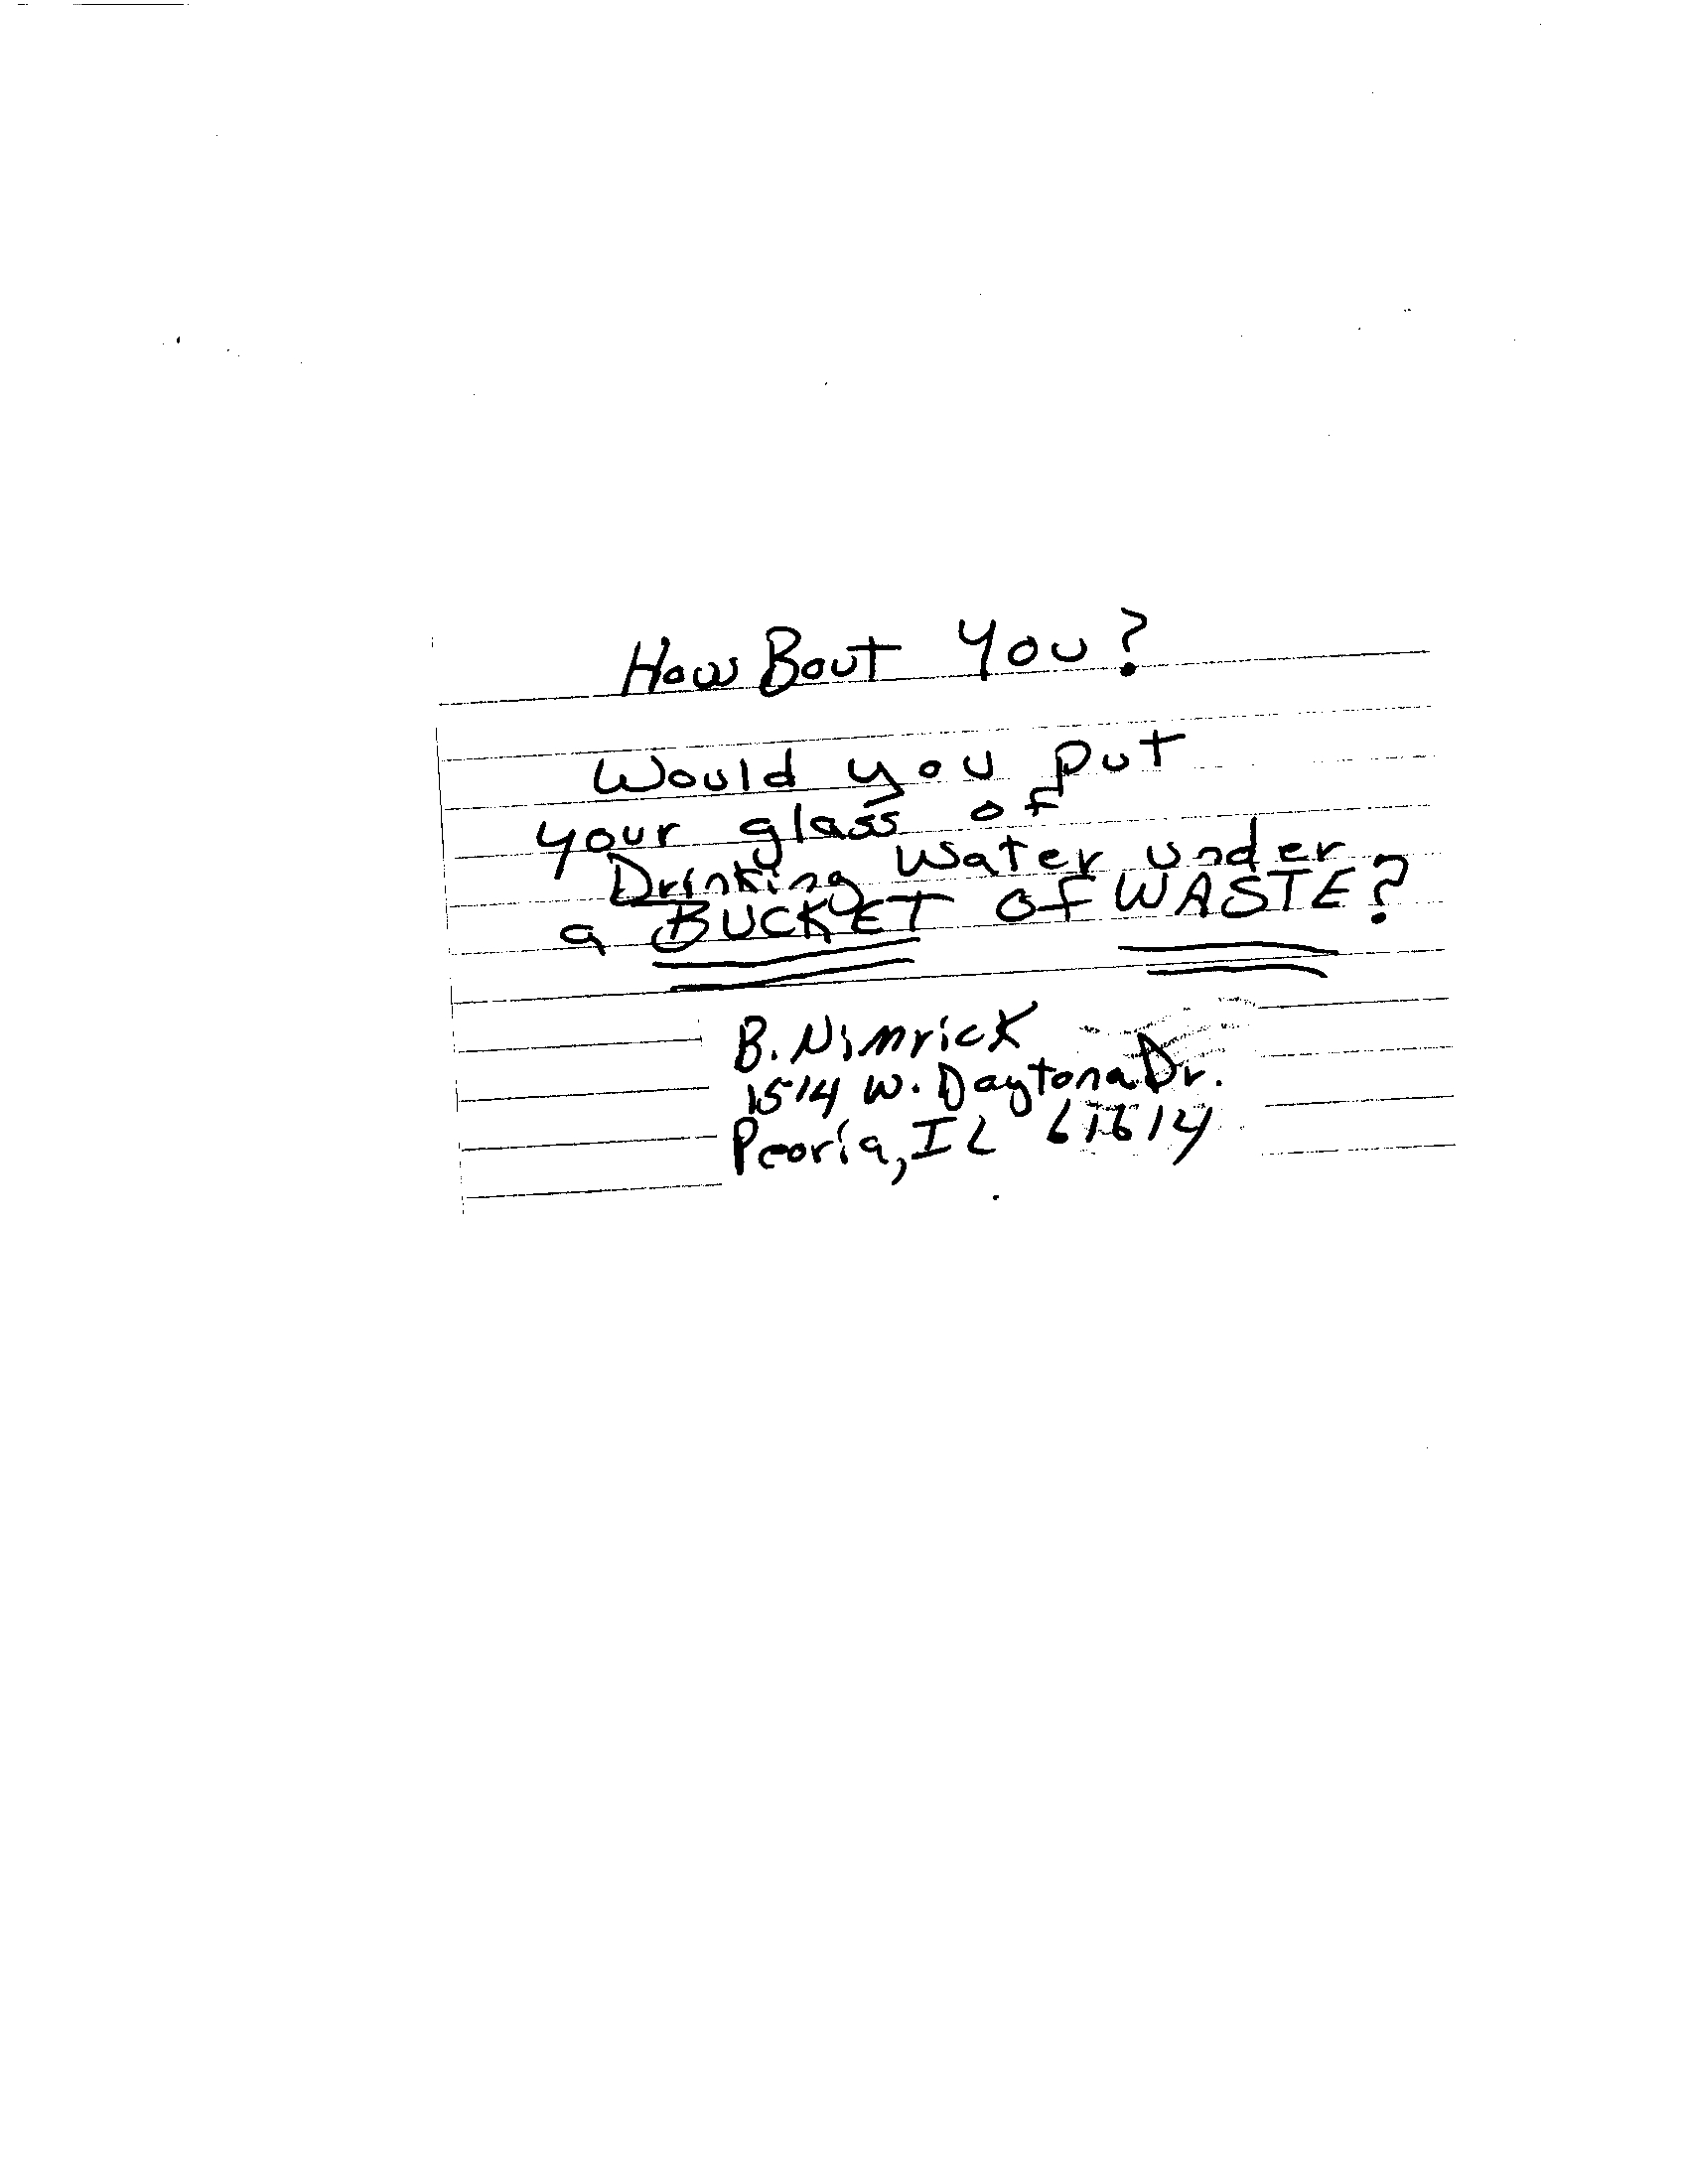 How Bout You?
Would you put
your glass of
Drinking water under
a BUCKET of WASTE?
B. Nimrick
1514 W. Daytona Dr.
Peoria, IL 61614